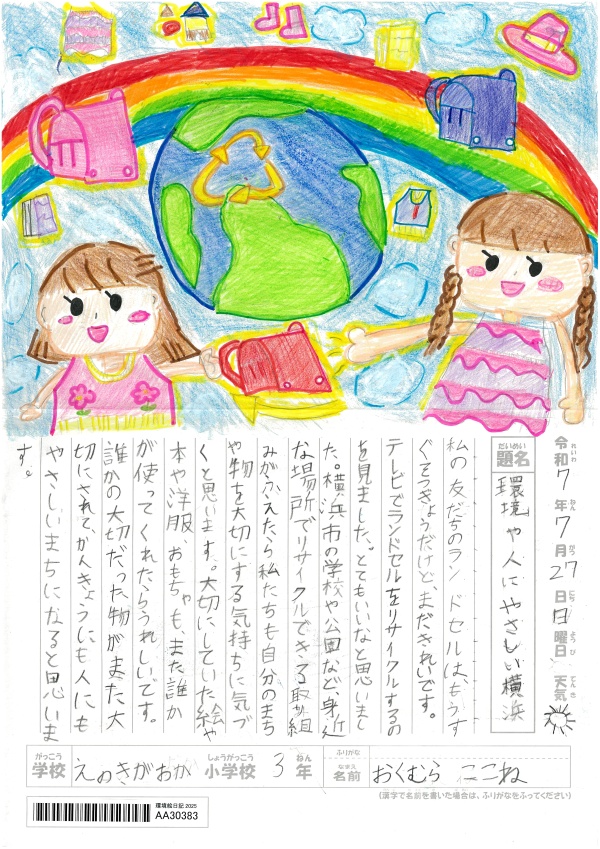 令和7年7月27日日曜日 天気
れいわ ねん がつ にち ようび てんき
だいめい
題名 環境や人にやさしい横浜
私の友だちのランドセルは、もうす
ぐそつぎょうだけど、まだきれいです。
テレビでランドセルをリサイクルするの
を見ました。とてもいいなと思いまし
た。横浜市の学校や公園など身近
な場所でリサイクルできる取り組
みがふえたら私たちも自分のまち
や物を大切にする気持ちに気づ
くと思います。大切にしていた絵
本や洋服、おもちゃも、また誰か
が使ってくれたらうれしいです。
誰かの大切だった物がまた大
切にされて、かんきょうにも人にも
やさしいまちになると思いま
す。
がっこう しょうがっこう ねん ふりがな
学校 えのきがおか 小学校 3年 なまえ 名前 おくむら ここね
(漢字で名前を書いた場合は、ふりがなをふってください)
環境絵日記 2025
AA30383